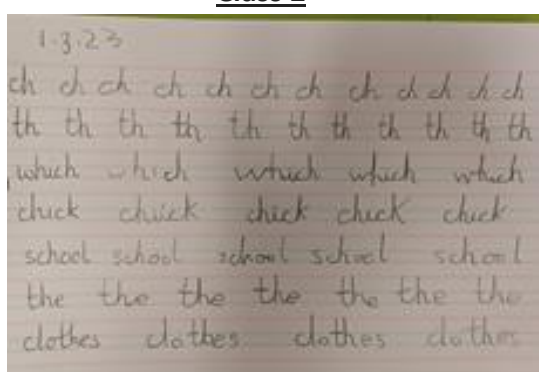 1.3.23
ch ch ch ch ch ch ch ch ch ch ch ch
th th th th th th th th th th th
which which which which which
chick chick chick chick chick
school school school school school
the the the the the the the
clothes clothes clothes clothes